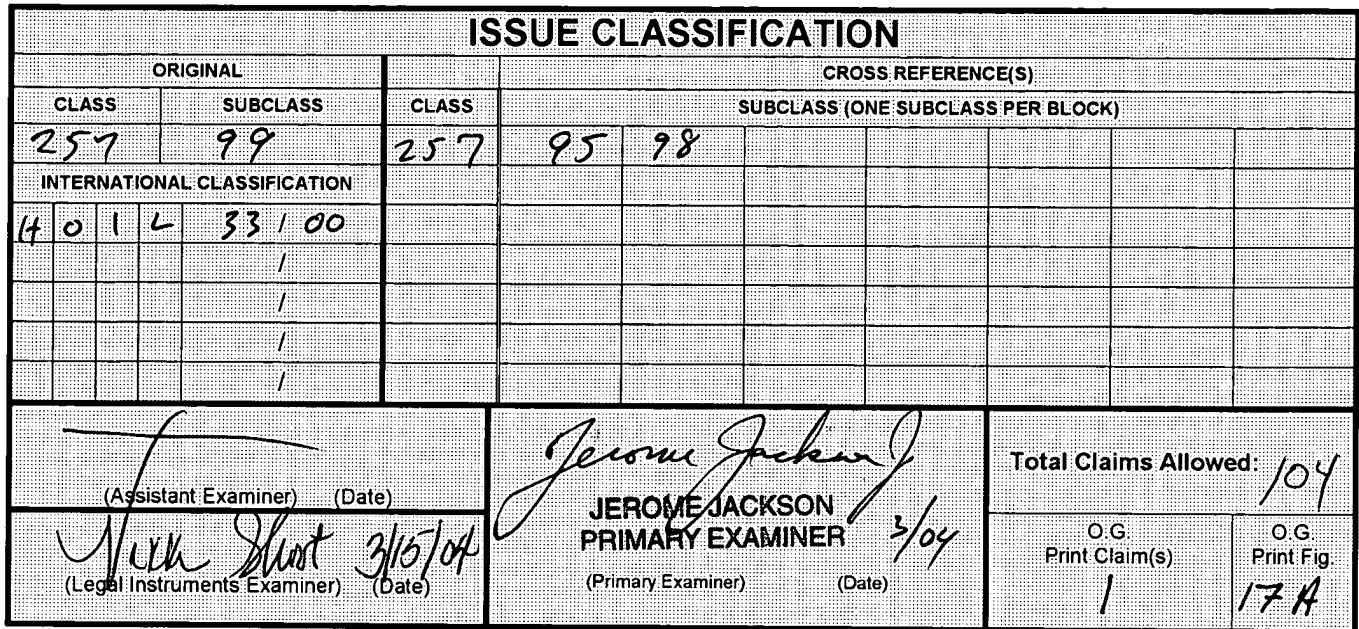 ISSUE CLASSIFICATION
ORIGINAL CROSS REFERENCE(S)
CLASS SUBCLASS CLASS SUBCLASS (ONE SUBCLASS PER BLOCK)
257 99 257 95 98
INTERNATIONAL CLASSIFICATION
H 0 1 L 33 / 00
/
/
/
/
(Assistant Examiner) (Date)
Short 3/15/04
(Legal Instruments Examiner) (Date)
Jerome Jackson J
JEROME JACKSON
PRIMARY EXAMINER 3/04
(Primary Examiner) (Date)
Total Claims Allowed: 104
O.G. Print Claim(s)
1
O.G. Print Fig.
17A